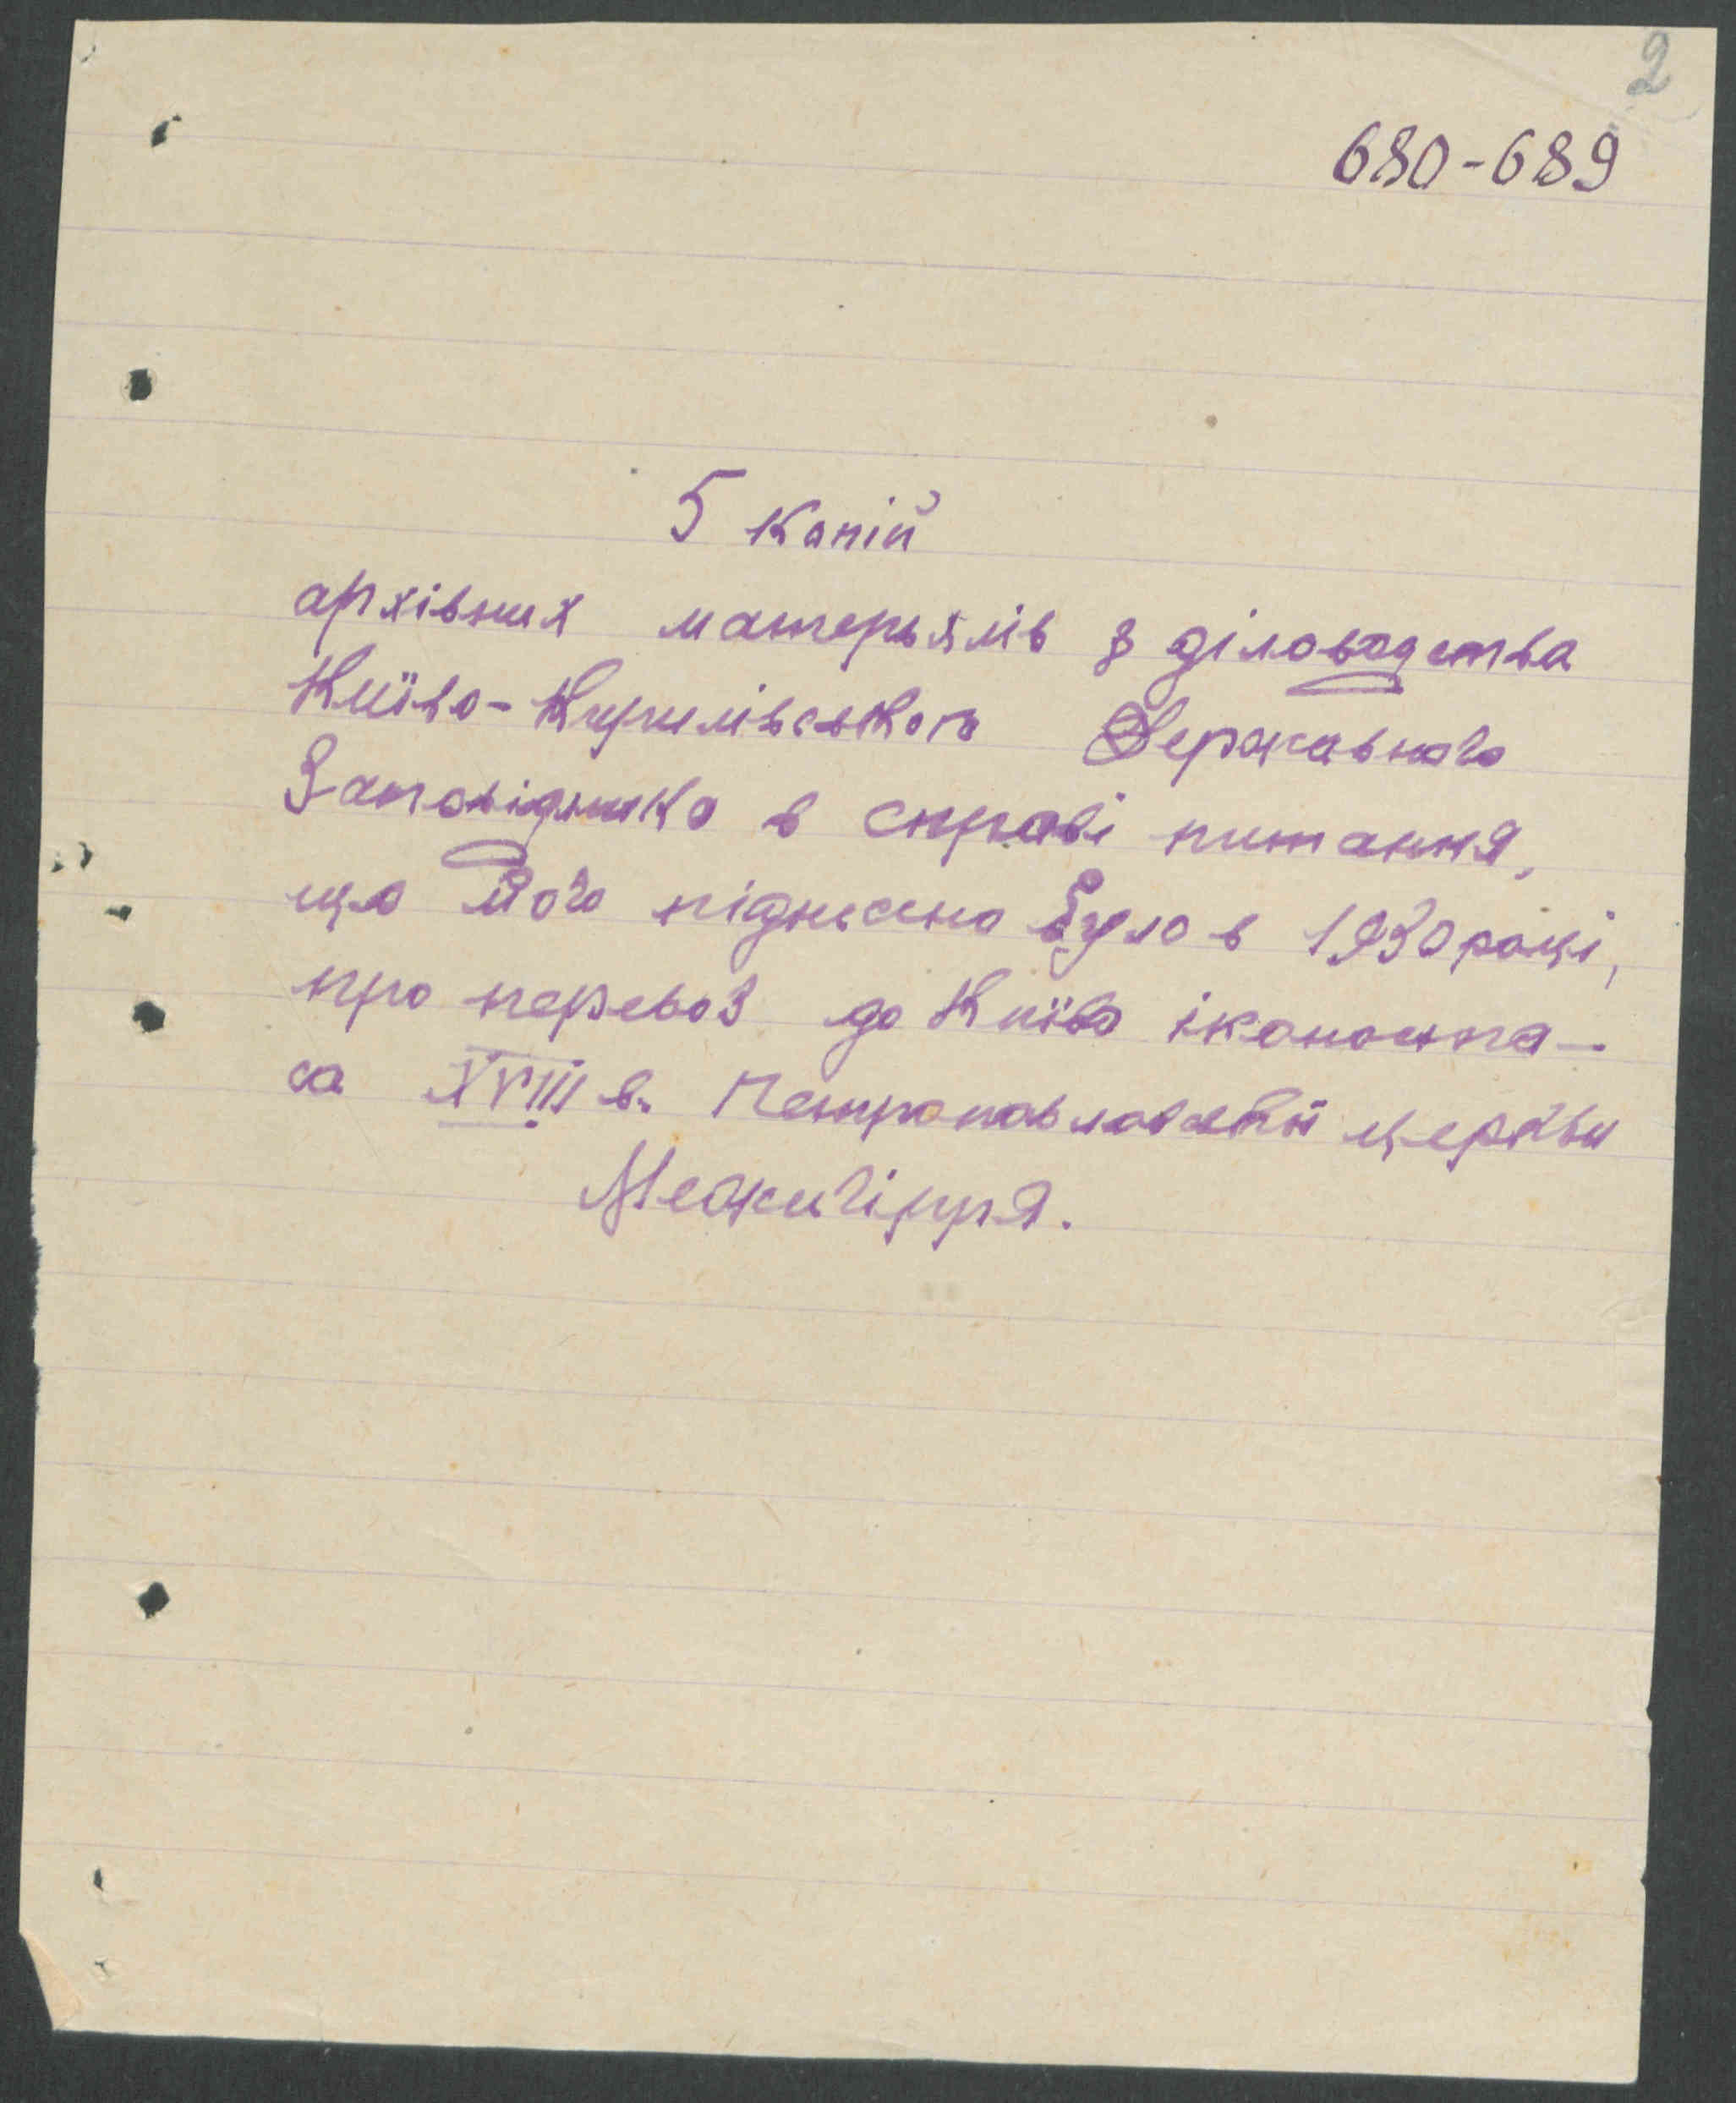 2
680-689
5 копій
архівних матерьялів з діловодства
Київо-Кирилівського Державного
Заповідника в справі питання,
що його піднесено було в 1930 році,
про перевоз до Київа іконоста-
са XVIII в. Петропавловської церкви
Межигірря.